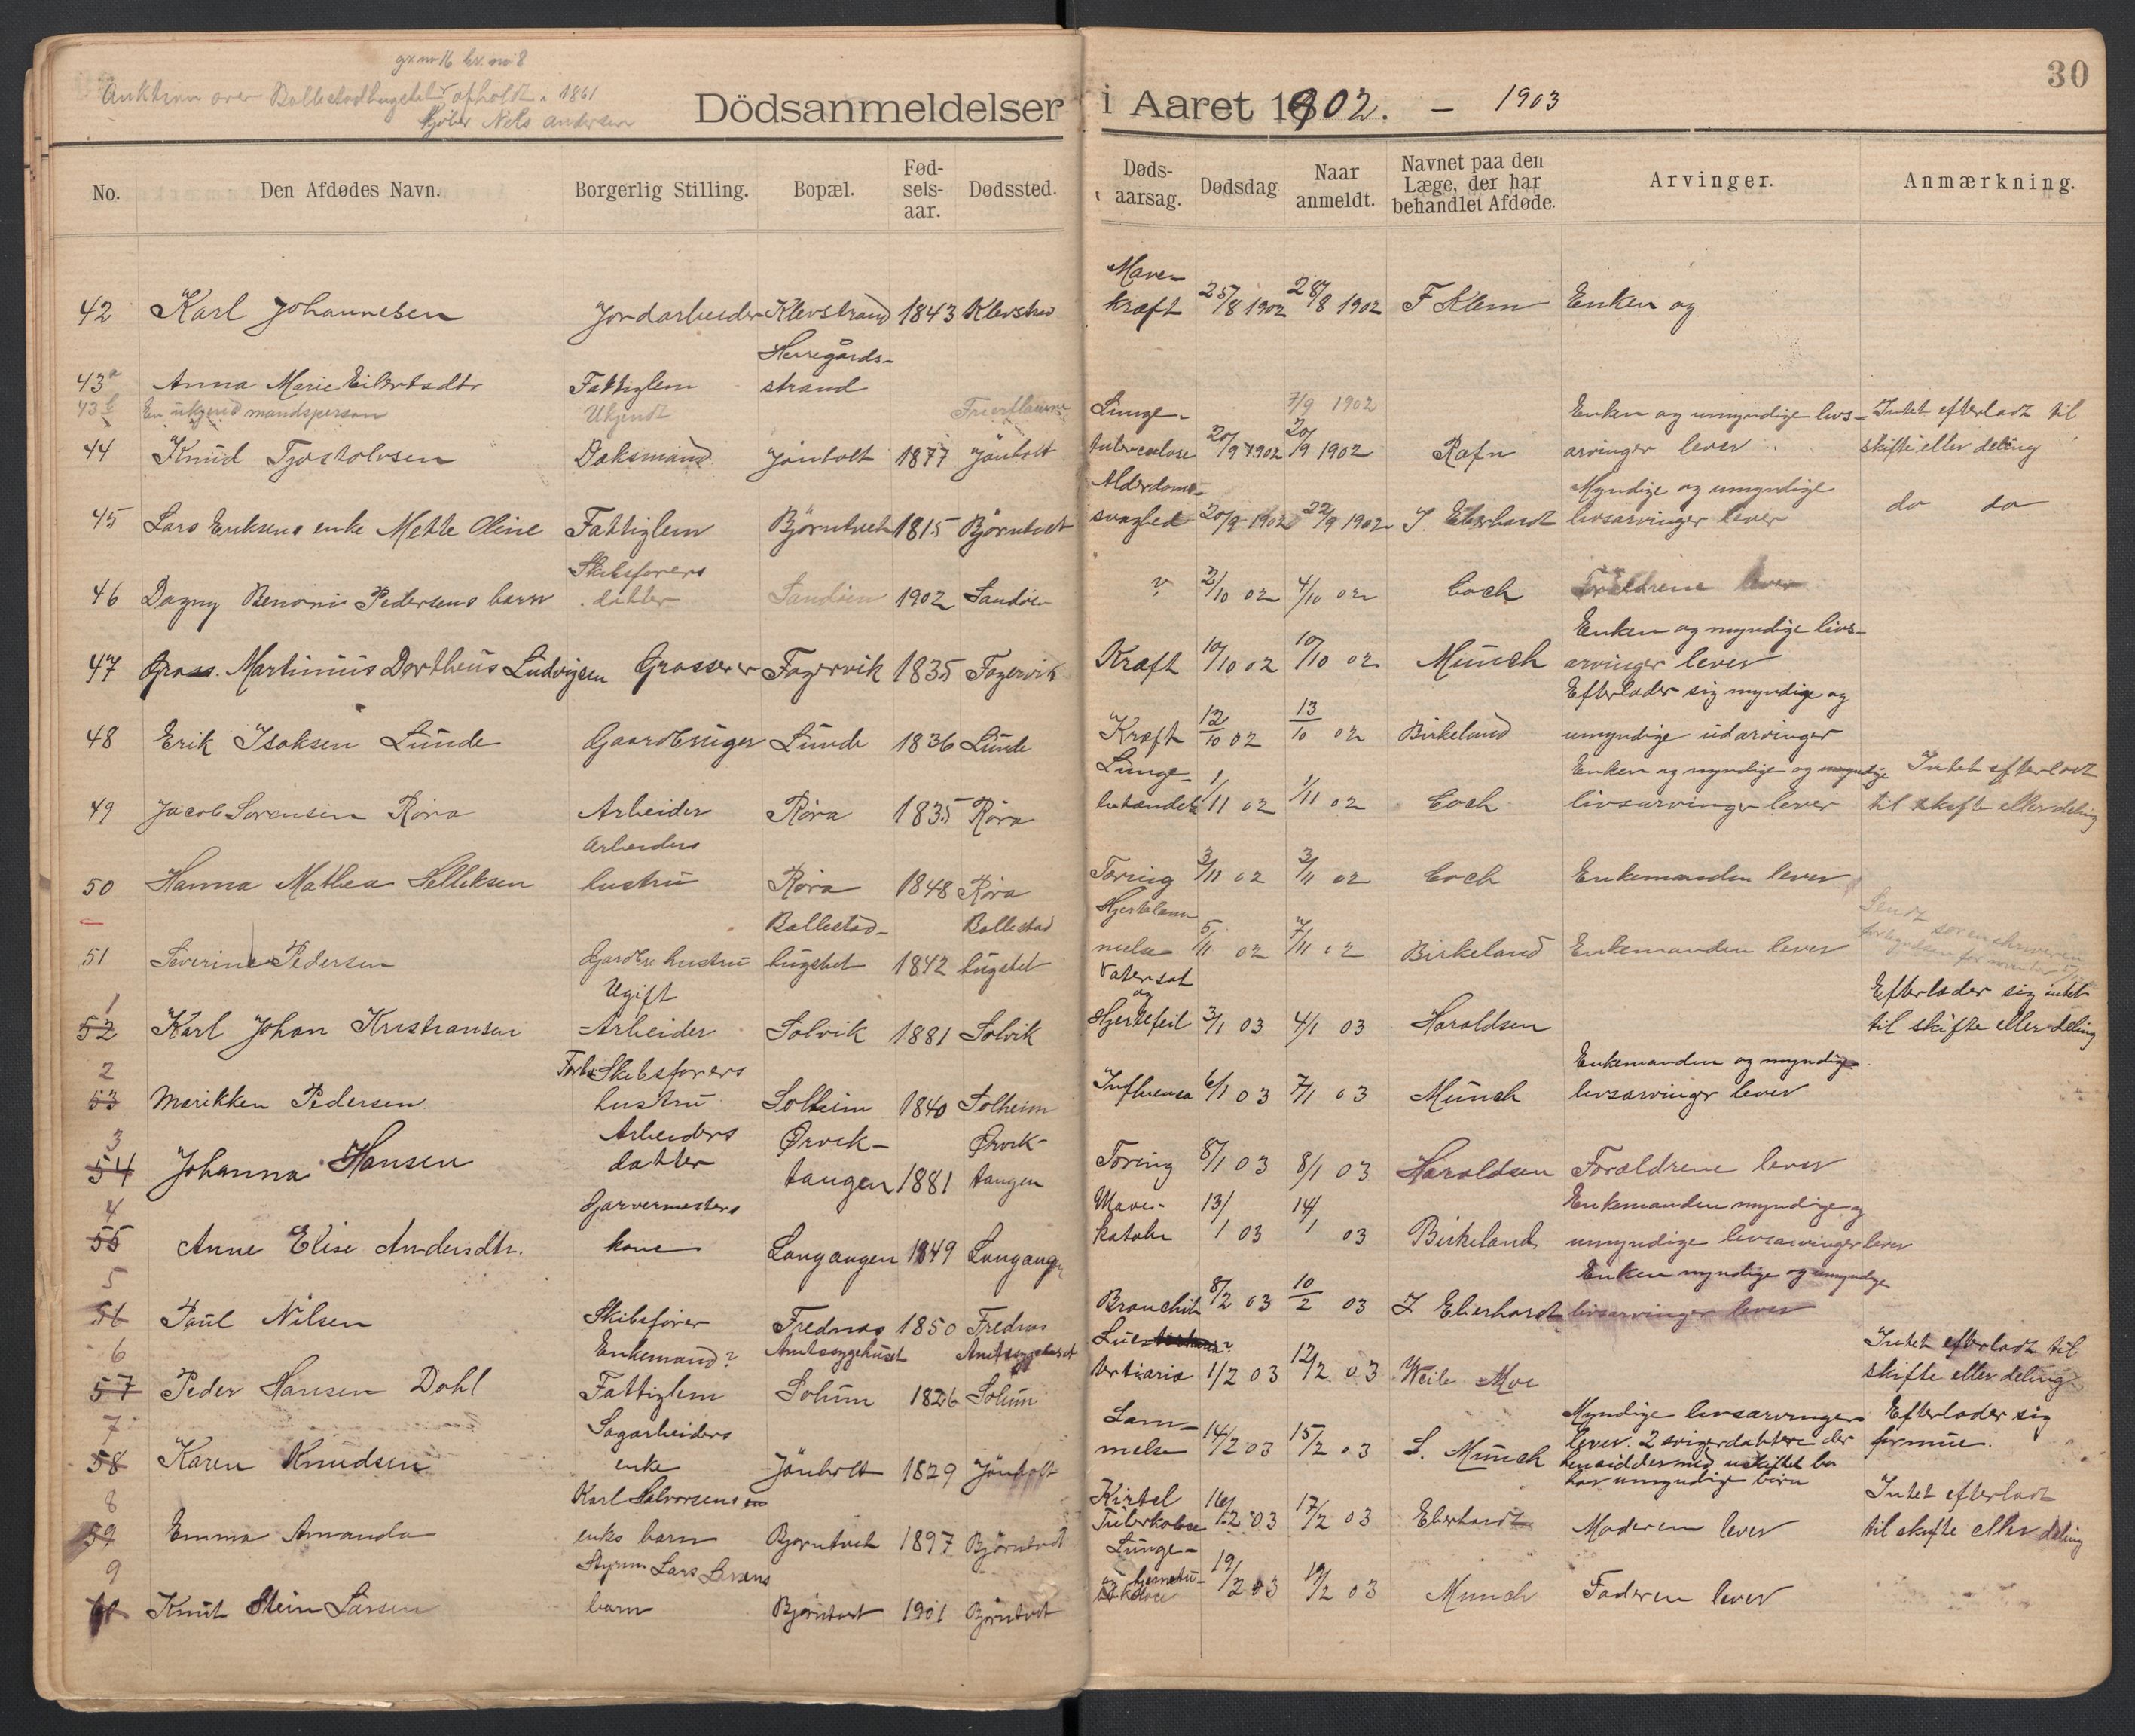 gr. no 16 br. no 8
Auktion over Ballestadbugstet afholdt i 1861
Kjøber Nels Andersen
30
Dödsanmeldelser i Aaret 1902. – 1903
No. Den Afdødes Navn. Borgerlig Stilling. Bopæl. Fød-sels-aar. Dødssted. Døds-aarsag. Dødsdag Naar anmeldt. Navnet paa den Læge, der har behandlet Afdøde. Arvinger. Anmærkning.
Mave-
42 Karl Johannesen Jordarbeider Klevstrand 1843 Klevstrand kræft 25/8 1902 28/8 1902 F Klem Enken og
Herregårds-
43a Anna Marie Eilertsdtr Fattiglem strand
43b En ukjend mandsperson Ukjendt Frierflauene 7/9 1902
Lunge- Enken og umyndige livs- Intet efterladt til
44 Knud Tjostolvsen Daksmand Jönholt 1877 Jönholt tuberculose 20/9 1902 20/9 1902 Rafn arvinger lever skifte eller deling
Alderdoms- Myndige og umyndige
45 Lars Eriksens enke Mette Oline Fattiglem Björntvedt 1815 Björntvedt svaghed 20/9 1902 22/9 1902 J. Eberhardt livsarvinger lever do do
Skibsførers
46 Dagny Benoni Pedersens barn datter Sandöen 1902 Sandöen ? 2/10 02 4/10 02 Coch Forældrene lever
Enken og myndige livs-
47 Gross. Martinius Dortheus Ludvigsen Grosserer Fagervik 1835 Fagervik Kræft 10/10 02 10/10 02 Münch arvinger lever
Efterlader sig myndige og
48 Erik Isaksen Lunde Gaardbruger Lunde 1836 Lunde Kræft 12/10 02 13/10 02 Birkeland umyndige udarvinger
Lunge- Enken og myndige og umyndige Intet efterladt
49 Jacob Sørensen Röra Arbeider Röra 1835 Röra betændelse 1/11 02 1/11 02 Coch livsarvinger lever til skifte eller deling
Arbeiders
50 Hanna Mathea Selleksen hustru Röra 1848 Röra Tæring 3/11 02 3/11 02 Coch Enkemanden lever
Ballestad- Ballestad Hjertelam- Sendt sorenskriveren
51 Severine Pedersen Gardbr. hustru bugstet 1842 bugstet melse 5/11 02 7/11 02 Birkeland Enkemanden lever
Ugift Vatersot og Efterlader sig intet
1 52 Karl Johan Kristiansen Arbeider Solvik 1881 Solvik Hjertefeil 3/1 03 4/1 03 Haraldsen til skifte eller deling
Forh. Skibsførers Enkemanden og myndige
2 53 Marikken Pedersen hustru Solheim 1840 Solheim Influensa 6/1 03 7/1 03 Münch livsarvinger lever
Arbeiders Ørvik- Ørvik-
3 54 Johanna Hansen datter tangen 1881 tangen Tæring 8/1 03 8/1 03 Haraldsen Forældrene lever
Garvermesters Mave- Enkemanden myndige og
4 55 Anne Elise Andersdtr. kone Langangen 1849 Langangen katahr 13/1 03 14/1 03 Birkeland umyndige livsarvinger lever
Enken myndige og umyndige
5 56 Paul Nilsen Skibsfører Frednæs 1850 Frednæs Bronchit 8/2 03 10/2 03 J Eberhardt livsarvinger lever
Enkemand? Amtssygehuset Amtssygehuset Lues Intet efterladt til
6 57 Peder Hansen Dahl Fattiglem Solum 1826 Solum tertiaria 1/2 03 12/2 03 Weile Moe skifte eller deling
Sagarbeiders Lam- Myndige livsarvinger Efterlader sig
7 58 Karen Knudsen enke Jönholt 1829 Jönholt melse 14/2 03 15/2 03 S. Münch lever. 2 svigerdøttere der formue.
hensidder med uskiftet bo
har umyndige børn
Karl Halvorsens Kirtel Intet efterladt
8 59 Emma Amanda enks barn Bjørntvedt 1897 Björntvedt Tuberkolose 16/2 03 17/2 03 Eberhardt Moderen lever til skifte eller deling
Styrm Lars Larsens Lunge-
9 60 Knut Stein Larsen barn Bjørntvedt 1901 Bjørntvedt og 19/2 03 19/2 03 Munch Faderen lever